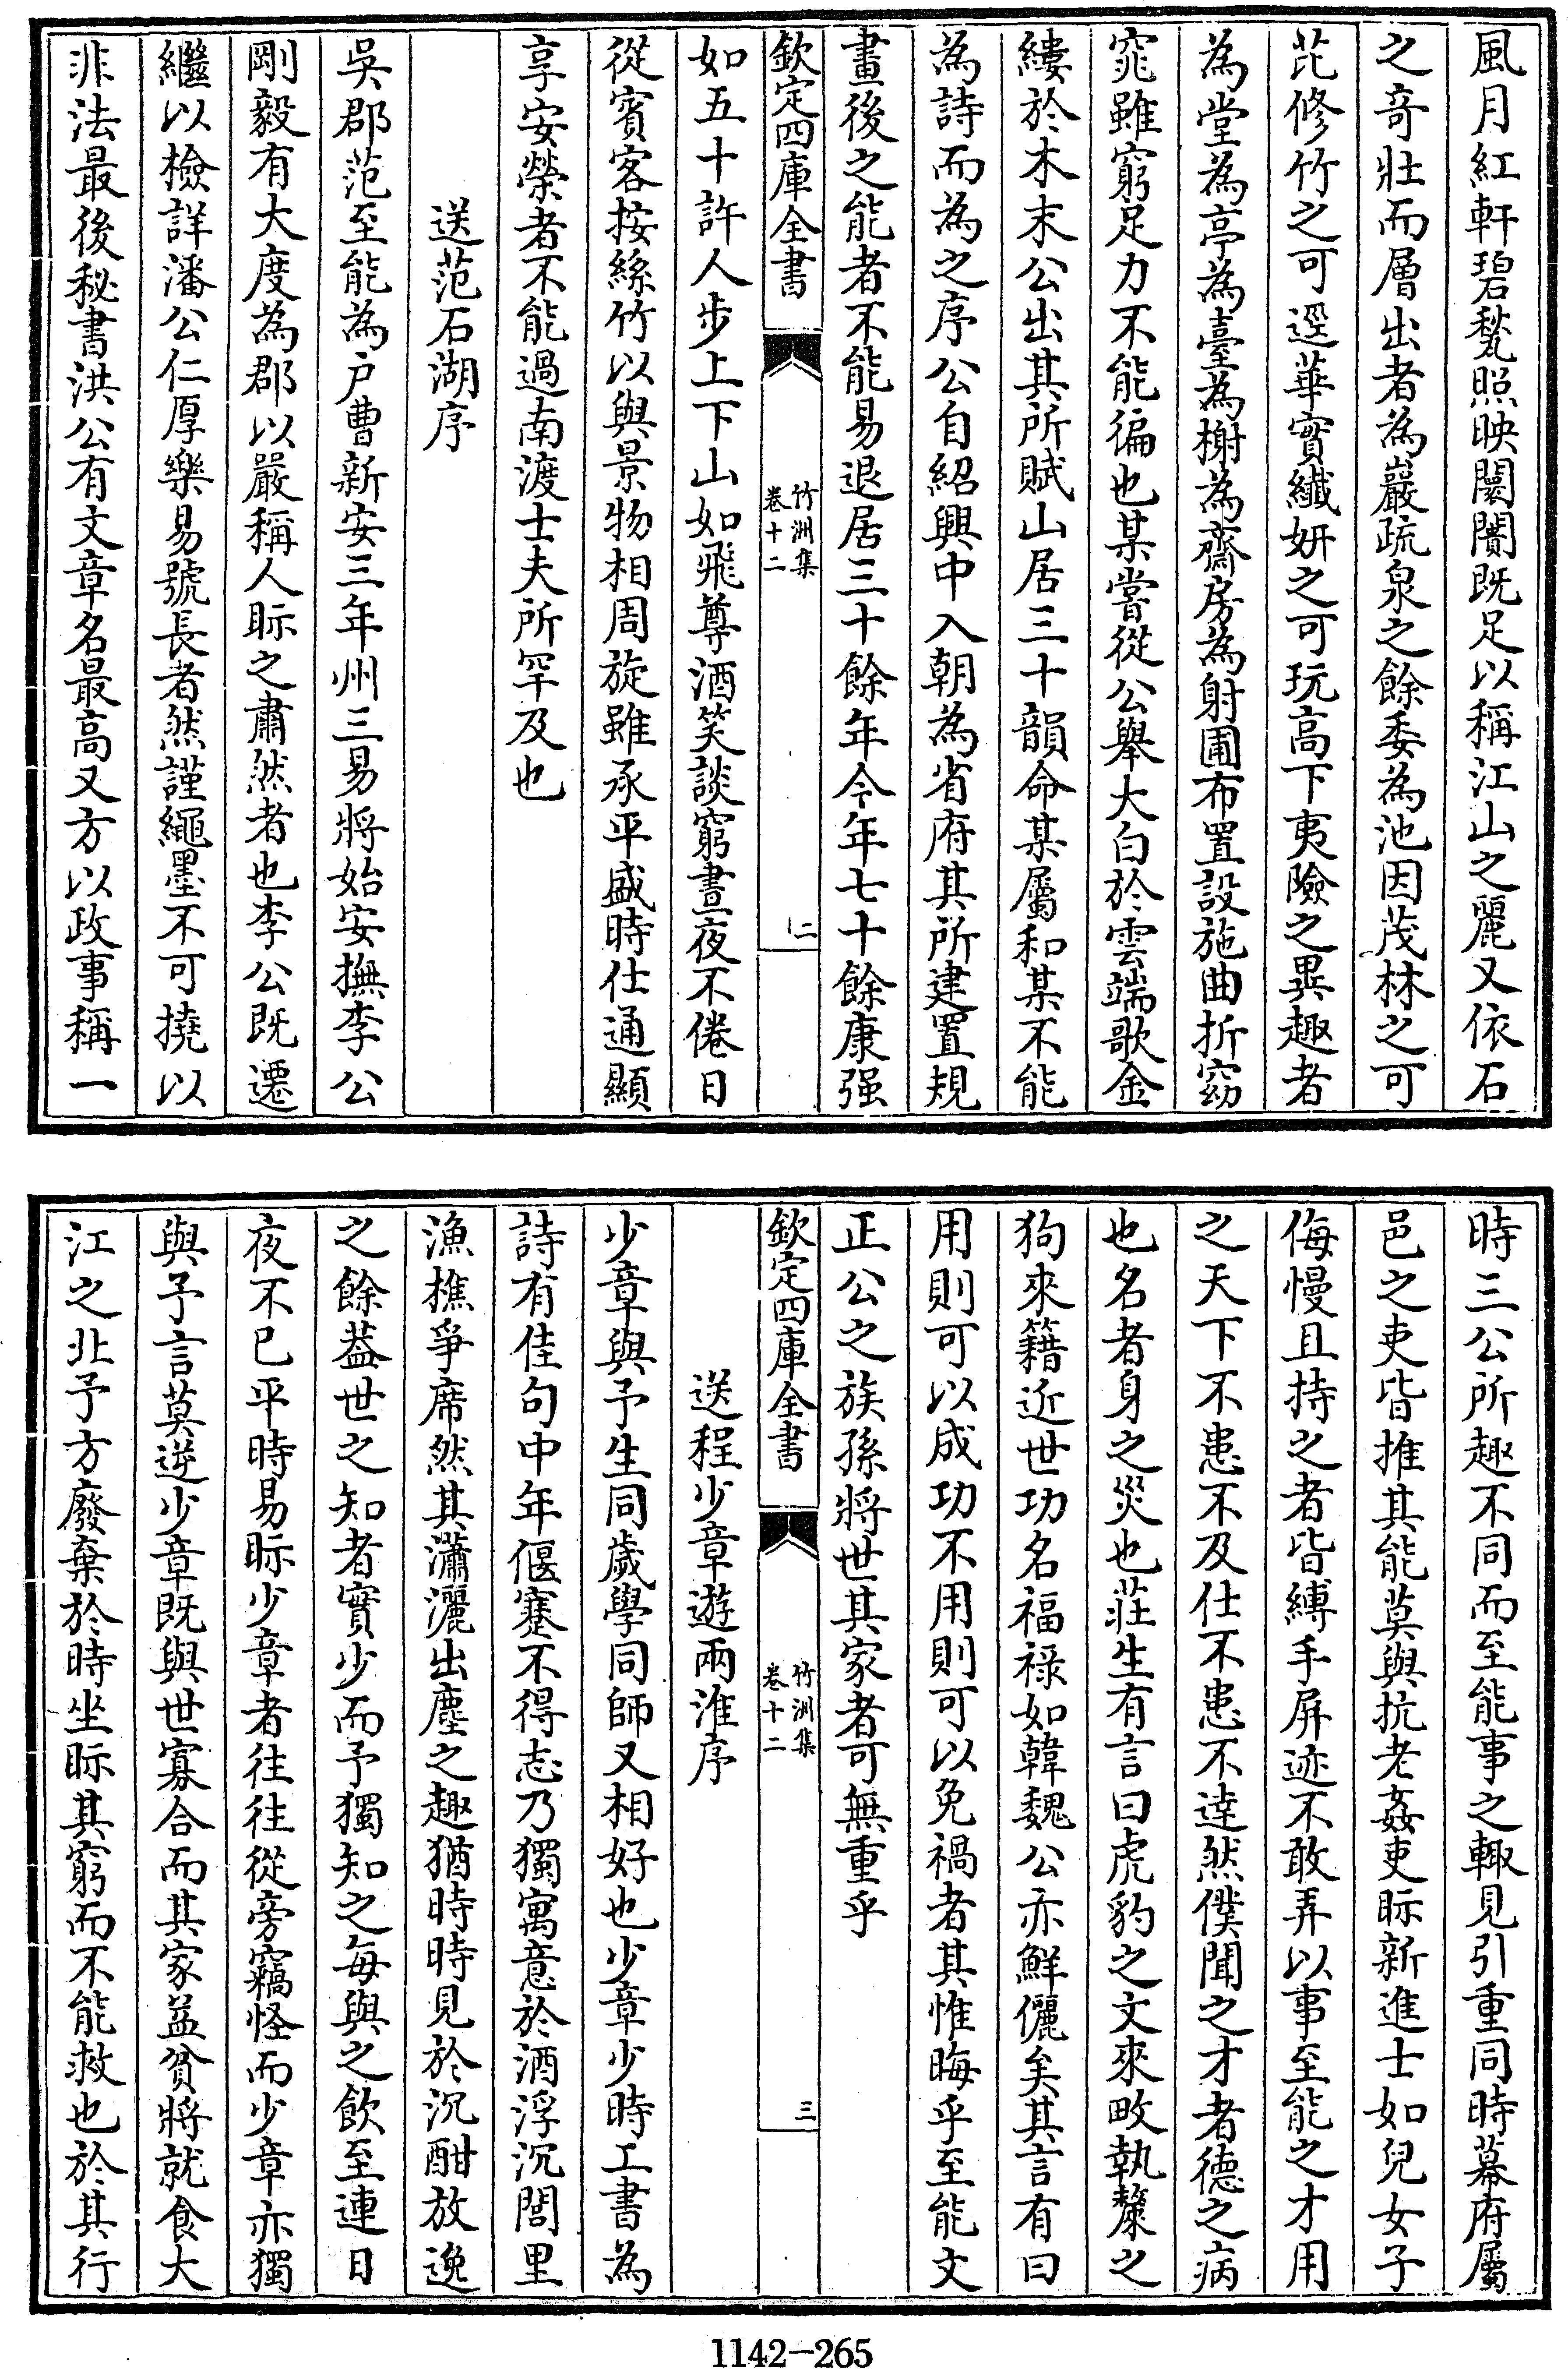 風月紅軒碧甃照映闤闠既足以稱江山之麗又依石
之奇壯而層出者為巖疏泉之餘委為池因茂林之可
芘修竹之可逕華實纖妍之可玩高下夷險之異趣者
為堂為亭為臺為榭為齋房為射圃布置設施曲折窈
窕雖窮足力不能徧也某嘗從公舉大白於雲端歌金
縷於木末公出其所賦山居三十韻命某屬和某不能
為詩而為之序公自紹興中入朝為省府其所建置規
畫後之能者不能易退居三十餘年今年七十餘康强
欽定四庫全書
竹洲集
卷十二
二
如五十許人步上下山如飛尊酒笑談窮晝夜不倦日
從賓客按絲竹以與景物相周旋雖承平盛時仕通顯
享安榮者不能過南渡士夫所罕及也
送范石湖序
吳郡范至能為户曹新安三年州三易將始安撫李公
剛毅有大度為郡以嚴稱人眎之肅然者也李公既遷
繼以檢詳潘公仁厚樂易號長者然謹繩墨不可撓以
非法最後秘書洪公有文章名最高又方以政事稱一
時三公所趣不同而至能事之輙見引重同時幕府屬
邑之吏皆推其能莫與抗老姦吏眎新進士如兒女子
侮慢且持之者皆縛手屏迹不敢弄以事至能之才用
之天下不患不及仕不患不逹然僕聞之才者德之病
也名者身之災也莊生有言曰虎豹之文來畋執斄之
狗來籍近世功名福禄如韓魏公亦鮮儷矣其言有曰
用則可以成功不用則可以免禍者其惟晦乎至能文
正公之族孫將世其家者可無重乎
欽定四庫全書
竹洲集
卷十二
三
送程少章遊兩淮序
少章與予生同歲學同師又相好也少章少時工書為
詩有佳句中年偃蹇不得志乃獨寓意於酒浮沉閭里
漁樵爭席然其瀟灑出塵之趣猶時時見於沉酣放逸
之餘葢世之知者實少而予獨知之每與之飲至連日
夜不已平時易眎少章者往往從旁竊怪而少章亦獨
與予言莫逆少章既與世寡合而其家益貧將就食大
江之北予方廢棄於時坐眎其窮而不能救也於其行
1142-265